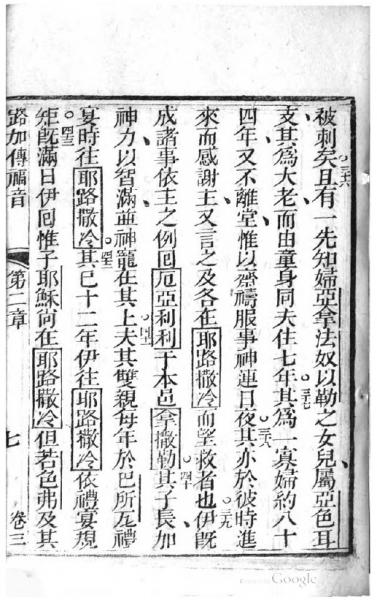 被刺矣且有一先知婦亞拿法奴以勒之女兒屬亞色耳
三六
支其爲大老而由童身同夫住七年其爲一寡婦約八十
三七
四年又不離堂惟以齋禱服事神連日夜其亦於彼時進
三八
來而感謝主又言之及各在耶路撒冷而望救者也伊旣
三九
成諸事依主之例囘厄亞利利于本邑拿撒勒其子長加
四十
神力以智滿並神寵在其上夫其雙親每年於巴所瓦禮
四一
宴時往耶路撒冷其已十二年伊往耶路撒冷依禮宴規
四二
矩旣滿日伊囘惟子耶穌尚在耶路撒冷但若色弗及其
四三
路加傳福音 第二章 七 卷三
Google